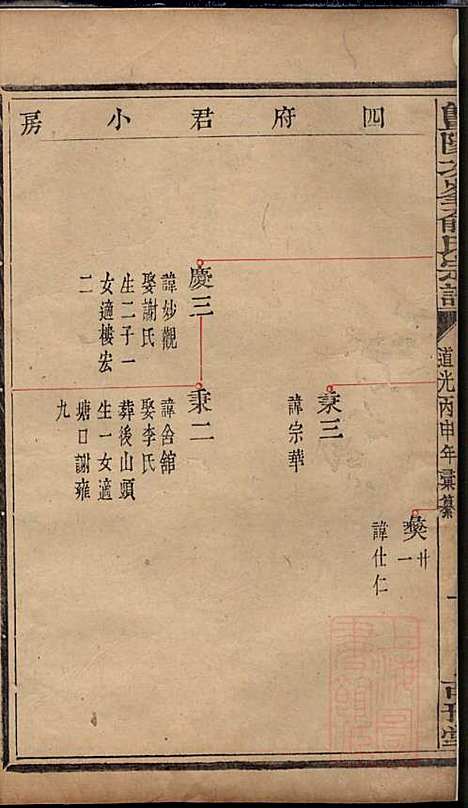 四府君小房
燓廿一
諱仕仁
秉三
諱宗華
慶三
諱妙觀
娶謝氏
生二子一
女適樓宏
二
秉二
諱舍舘
娶李氏
葬後山頭
生一女適
塘口謝雍
九
道光丙申年彙纂